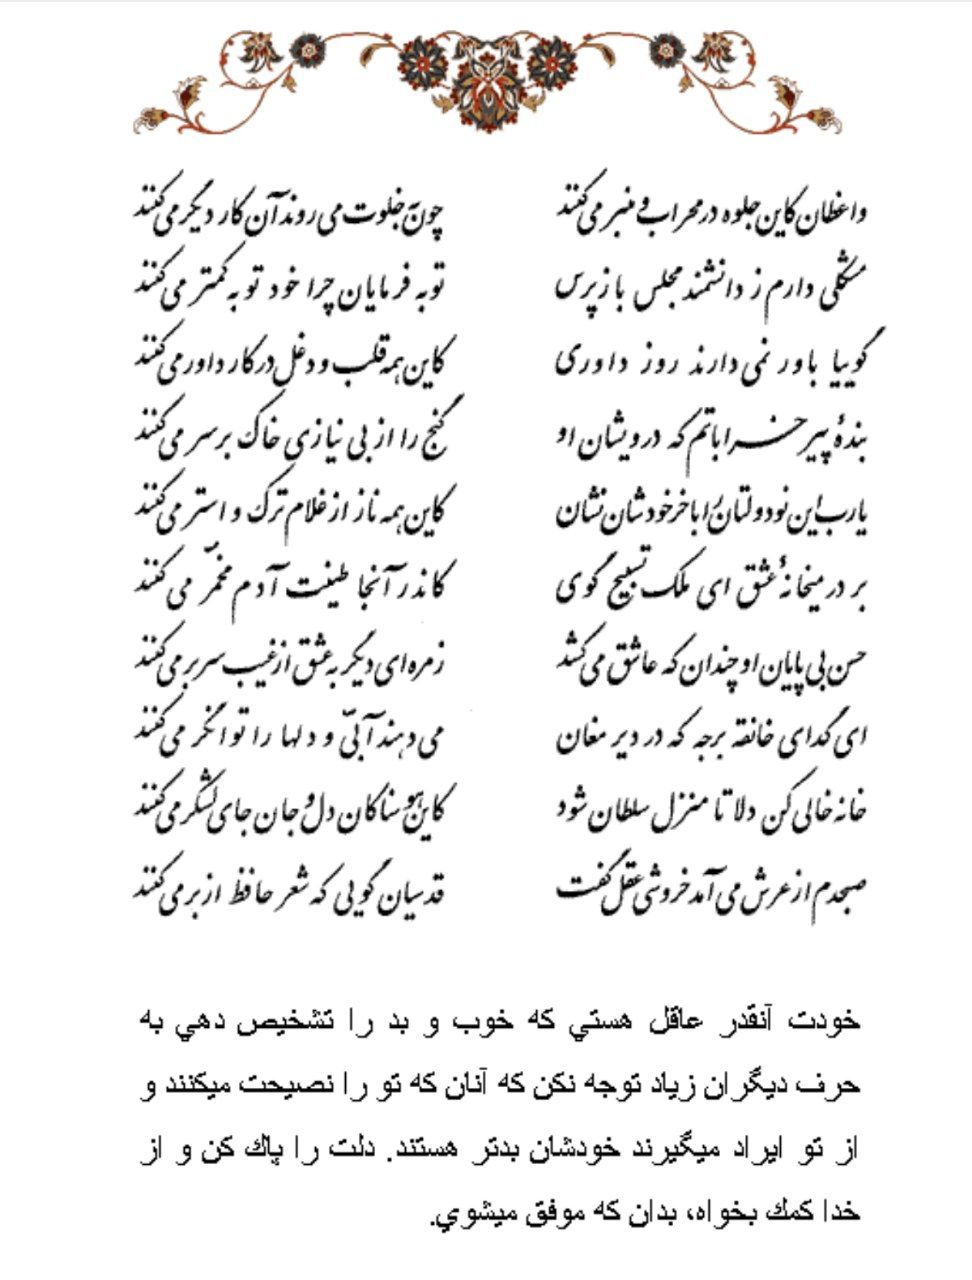 واعظان کاین جلوه در محراب و منبر می‌کنند چون به خلوت می‌روند آن کار دیگر می‌کنند
مشکلی دارم ز دانشمند مجلس باز پرس توبه فرمایان چرا خود توبه کمتر می‌کنند
گوییا باور نمی‌دارند روز داوری کاین همه قلب و دغل در کار داور می‌کنند
بندهٔ پیر خراباتم که درویشان او گنج را از بی نیازی خاک بر سر می‌کنند
یارب این نودولتان را با خر خودشان نشان کاین همه ناز از غلام ترک و استر می‌کنند
بر در میخانهٔ عشق ای ملک تسبیح گوی کاندر آنجا طینت آدم مخمّر می‌کنند
حسن بی پایان او چندان که عاشق می‌کشد زمره‌ای دیگر به عشق از غیب سر بر می‌کنند
ای گدای خانقه برجه که در دیر مغان می‌دهند آبیّ و دلها را توانگر می‌کنند
خانه خالی کن دلا تا منزل سلطان شود کاین هوسناکان دل و جان جای لشگر می‌کنند
صبحدم از عرش می‌آمد خروشی عقل گفت قدسیان گویی که شعر حافظ از بر می‌کنند
خودت آنقدر عاقل هستي كه خوب و بد را تشخيص دهي به
حرف ديگران زياد توجه نكن كه آنان كه تو را نصيحت ميكنند و
از تو ايراد ميگيرند خودشان بدتر هستند. دلت را پاك كن و از
خدا كمك بخواه، بدان كه موفق ميشوي.